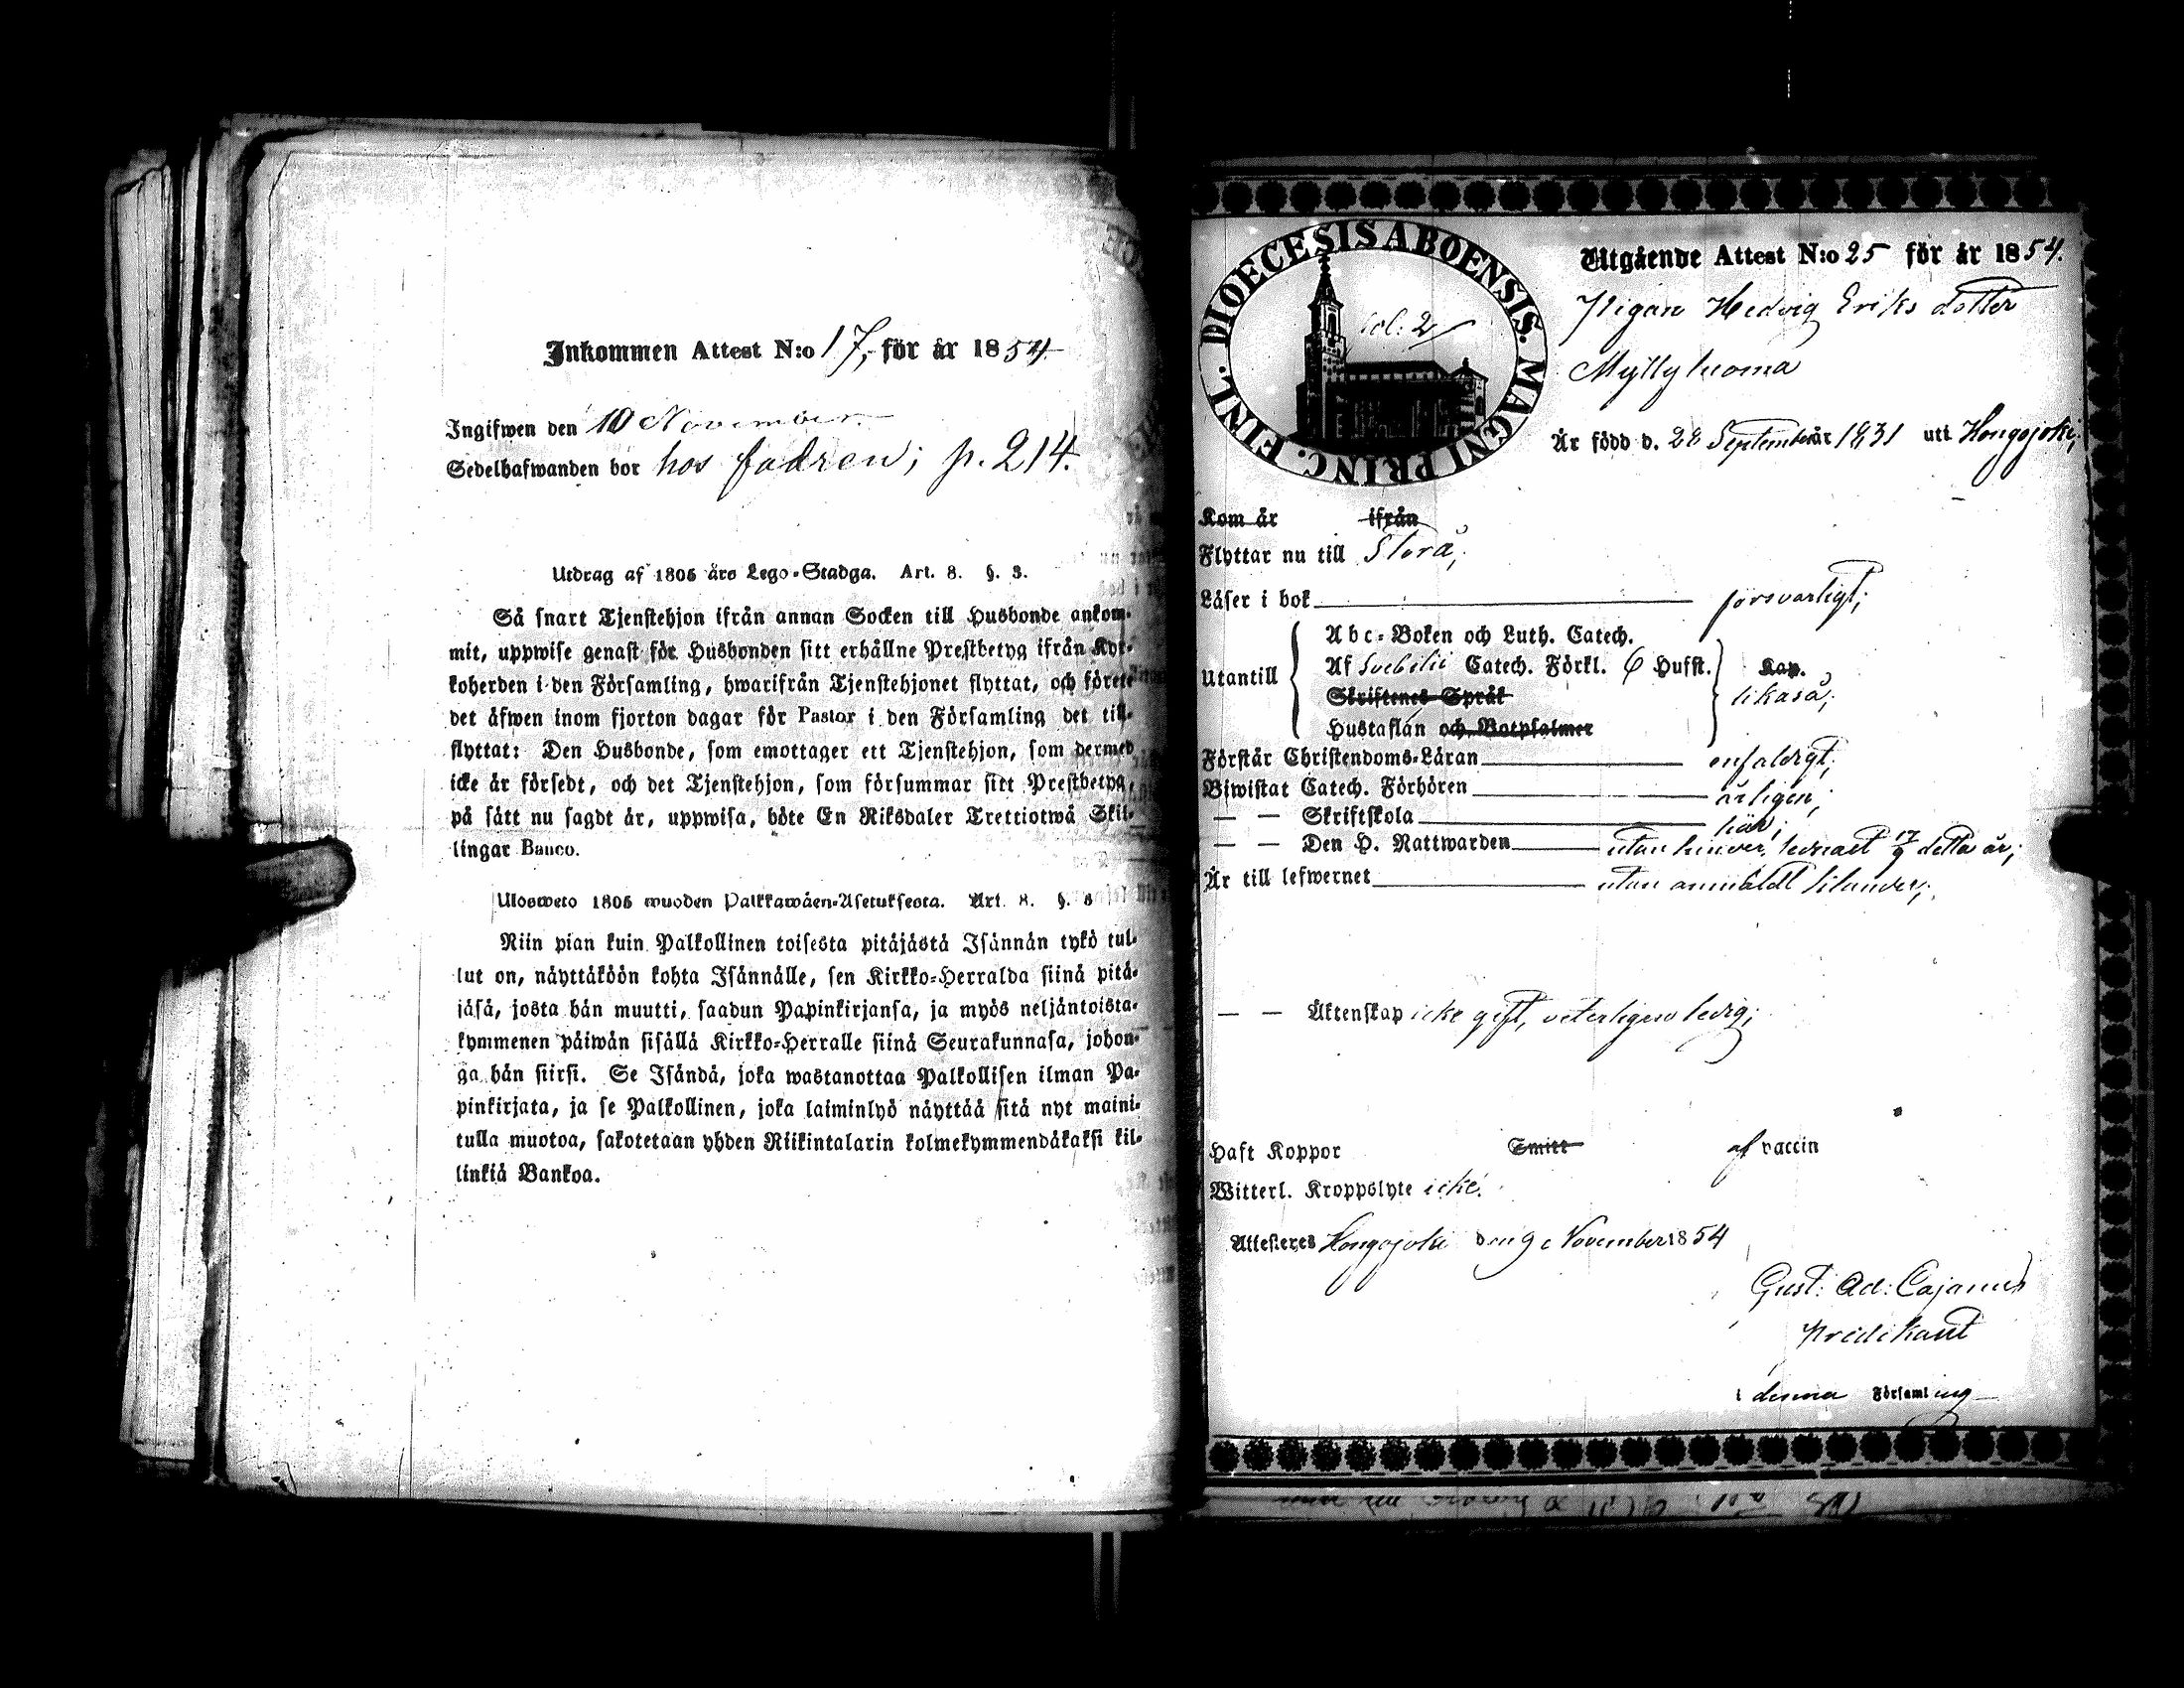 Inkommen Attest N:o 17, för år 1854.
Ingifwen den 10 November
Sedelhafwanden bor hos fadren; p. 214.
Utdrag af 1805 års Lego-Stadga. Art. 8. §. 3.
Så snart Tjenstehjon ifrån annan Socken till Husbonde ankom-
mit, uppwise genast för Husbonden sitt erhållne Prestbetyg ifrån Kyr-
koherden i den Församling, hwarifrån Tjenstehjonet flyttat, och förete
det äfwen inom fjorton dagar för Pastor i den Församling det till-
flyttat: Den Husbonde, som emottager ett Tjenstehjon, som dermed
icke är försedt, och det Tjenstehjon, som försummar sitt Prestbetyg,
på sätt nu sagdt är, uppwisa, böte En Riksdaler Trettiotwå Skil-
lingar Banco.
Ulosweto 1805 wuoden Palkkawäen-Asetuksesta. Art. 8. §. 3
Niin pian kuin Palkollinen toisesta pitäjästä Isännän tykö tul-
lut on, näyttäköön kohta Isännälle, sen Kirkko-Herralda siinä pitä-
jäsä, josta hän muutti, saadun Papinkirjansa, ja myös neljäntoista-
kymmenen päiwän sisällä Kirkko-Herralle siinä Seurakunnasa, johon-
ga hän siirsi. Se Isändä, joka wastanottaa Palkollisen ilman Pa-
pinkirjata, ja se Palkollinen, joka laiminlyö näyttää sitä nyt maini-
tulla muotoa, sakotetaan yhden Riikintalarin kolmekymmendäkaksi kil-
linkiä Bankoa.
DIOECESIS ABOENSIS. MAGNI PRINC. FINL.
fol: 2
Utgående Attest N:o 25 för år 1854.
Pigan Hedvig Eriksdotter
Myllyluoma
Är född d. 28 September år 1831 uti Hongojoki;
Kom år ifrån
Flyttar nu till Storå;
Läser i bok försvarligt;
Utantill
Abc-Boken och Luth. Catech.
Af Svebilii Catech. Förkl. 6 Hufst. Kap.
Skriftenes Språk likaså;
Hustaflan och Botpsalmer
Förstår Christendoms-Läran enfaldigt;
Biwistat Catech. Förhören årligen;
— — Skriftskola här;
— — Den H. Nattwarden utan hinder, sednast 17/9 detta år;
Är till lefwernet utan anmäldt
— — Äktenskap icke gift, veterligen ledig;
Haft Koppor Smitt af vaccin
Witterl. Kroppslyte icke.
Attesteres Hongojoki den 9 November 1854
Gust: Ad: Cajanus
Predikant
i denna Församling